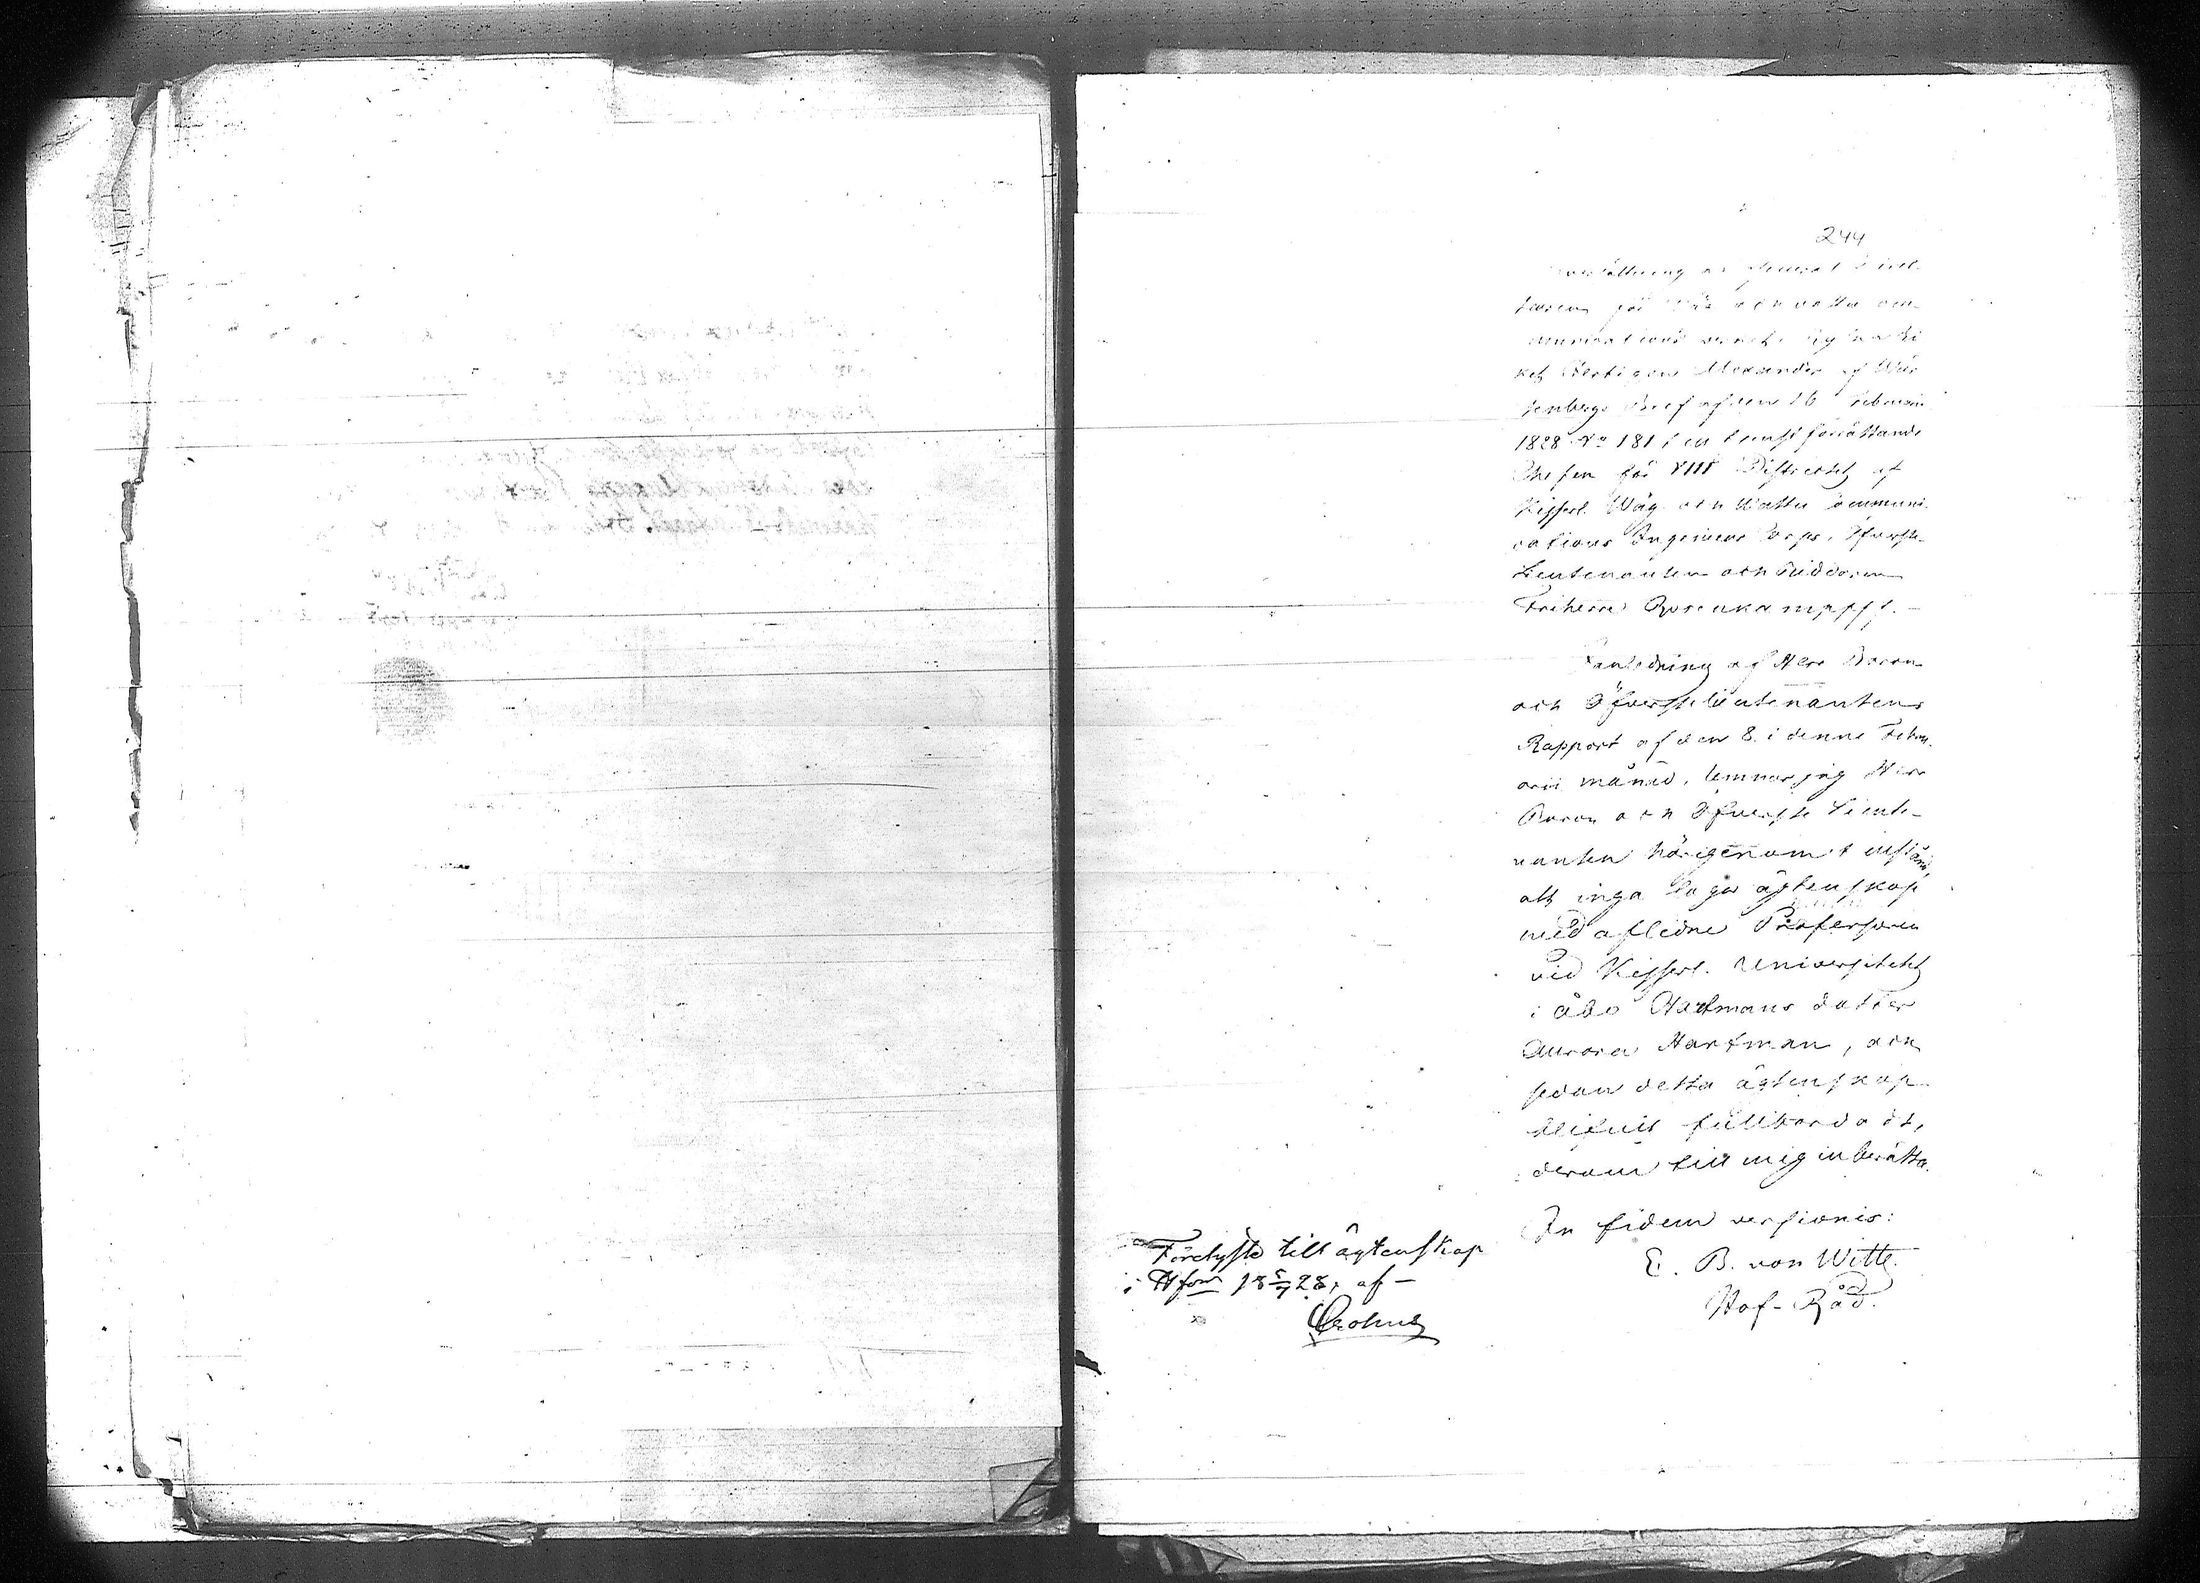 244
Öfversättning af General Direc-
teuren för Väg och vatten com-
munications verket, Hg
Hertigen Alexander af Wür-
tenbergs Bref af den 16 Februarii
1828 No 181 till tjenst förrättande
Chefen för VIII Districtet af
Kejserl. Wäg och Watten Communi-
cations Ingenieur Corps, Öfverste
Lieutenanten och Riddaren
Friherre Rosenkampff.
I anledning af Herr Baron
och Öfverste Lieutenantens
Rapport af den 8. i denne Febru-
arii månad, lemnar jag Herr
Baron och Öfverste Lieute-
nanten härigenom tillstånd,
att ingå laga ägtenskap
med aflidne Professoren
vid Kejserl. Universitetet
i Åbo Hartmans dotter
Aurora Hartman, och
sedan detta ägtenskap
blifvit fullbordadt,
derom till mig inberätta.
In fidem versionis:
E. B. von Witte.
Hof-Råd.
Förelyste till ägtenskap
i Hfors 18 5/7 28, af —
Crohns